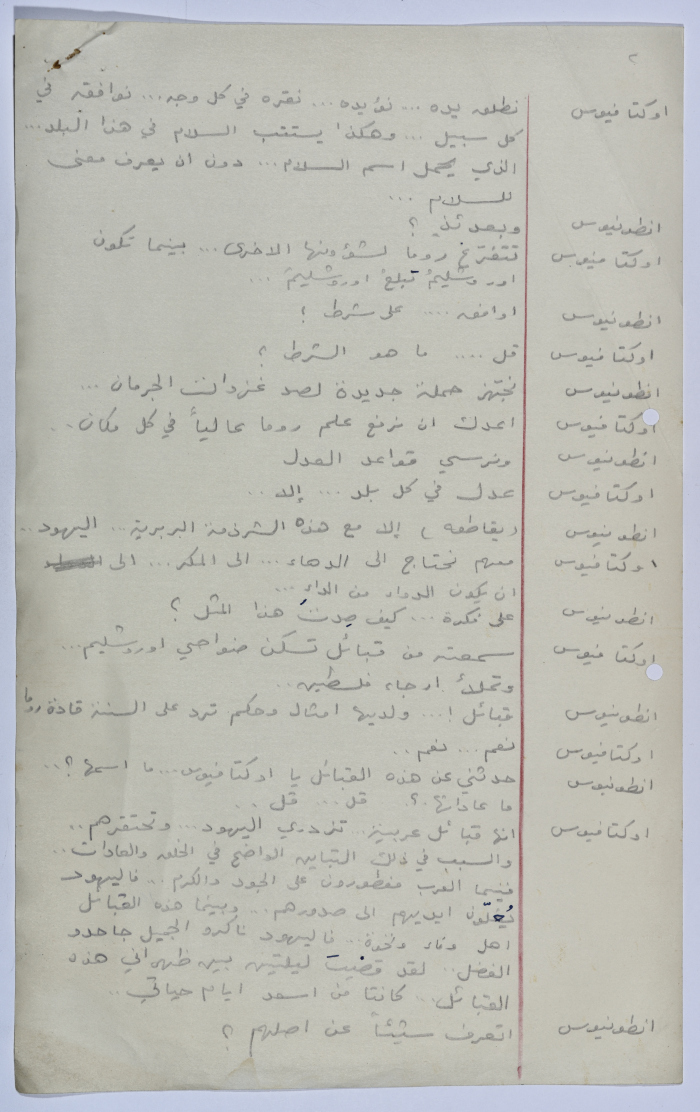 ٢
اوكتافيوس نطلق يده ... نؤيده ... نقره في كل وجه ... نوافقه في
كل سبيل ... وهكذا يستتب السلام في هذا البلد ...
الذي يحمل اسم السلام ... دون ان يعرف معنى
للسلام ...
انطونيوس وبعدئذٍ ؟
اوكتافيوس تتفرغ روما لشؤونها الاخرى ... بينما تكون
اورشليمُ تبلعُ اورشليمَ ...
انطونيوس اوافق .... على شرط !
اوكتافيوس قل .... ما هو الشرط ؟
انطونيوس نجهز حملة جديدة لصد غزوات الجرمان ...
اوكتافيوس اعدك ان نرفع علم روما عالياً في كل مكان ..
انطونيوس ونرسي قواعد العدل
اوكتافيوس عدل في كل بلد ... إلا ..
انطونيوس (يقاطعه) إلا مع هذه الشرذمة البربرية .. اليهود ..
اوكتافيوس معهم نحتاج الى الدهاء ... الى المكر ... الى
ان يكون الدواء من الداءِ ...
انطونيوس على فكرة ... كيف صِدتَ هذا المثل ؟
اوكتافيوس سمعته من قبائل تسكن ضواحي اورشليم ...
وتملأ ارجاء فلسطين ..
انطونيوس قبائل ! ... ولديها امثال وحكم ترد على السنة قادة روما
اوكتافيوس نعم ... نعم ..
انطونيوس حدثني عن هذه القبائل يا اوكتافيوس ... ما اسمها ؟ ..
ما عاداتها ؟. قل ... قل ..
اوكتافيوس انها قبائل عربية .. تزدري اليهود ... وتحتقرهم ..
والسبب في ذلك التباين الواضح في الخلق والعادات ..
فبينما العرب مفطورون على الجود والكرم ... فاليهود
يُغلّون ايديهم الى صدورهم ... وبينما هذه القبائل
اهل وفاء ونخوة .. فاليهود ناكرو الجميل جاحدو
الفضل .. لقد قضيتُ ليلتين بين ظهراني هذه
القبائل .. كانتا من اسعد ايام حياتي ..
انطونيوس اتعرف شيئاً عن اصلهم ؟